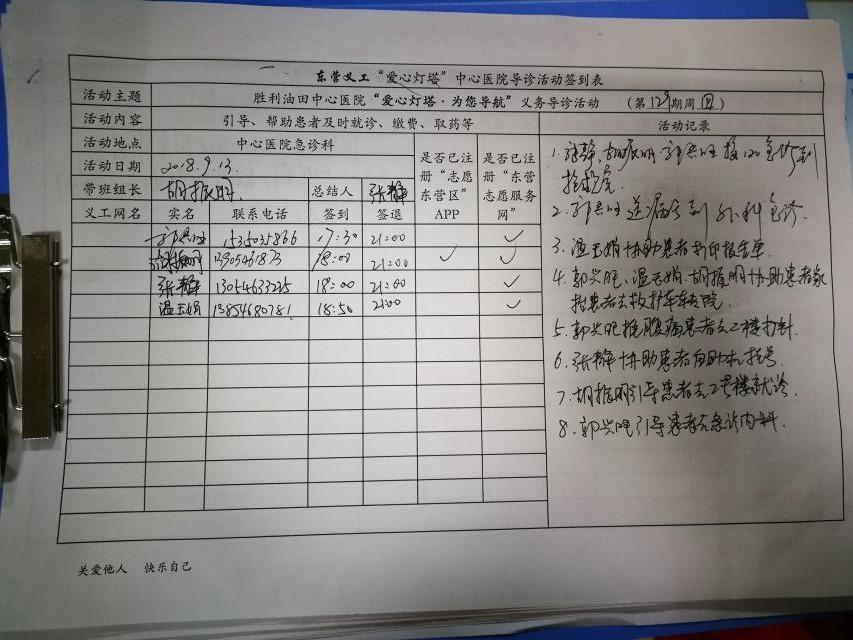 东营义工“爱心灯塔”中心医院导诊活动签到表
活动主题 胜利油田中心医院“爱心灯塔·为您导航”义务导诊活动 （第129期周四）
活动内容 引导、帮助患者及时就诊、缴费、取药等 活动记录
活动地点 中心医院急诊科
活动日期 2018.9.13.
是否已注册“志愿东营区”APP
是否已注册“东营志愿服务网”
带班组长 胡振明 总结人 张静
义工网名 实名 联系电话 签到 签退
郭兴旺 17:30 21:00 ✓
胡振明 18:00 21:00 ✓ ✓
张静 13054633225 18:00 21:00 ✓
温玉娟 13854680781 18:50 21:00 ✓
1. 张静、胡振明、郭兴旺接120急诊到
抢救室
2. 郭兴旺送病号到外科急诊
3. 温玉娟协助患者打印报告单
4. 郭兴旺、温玉娟、胡振明协助患者家
患者去救护车转院.
5. 郭兴旺推腹痛患者去2楼打针
6. 张静协助患者自助机挂号
7. 胡振明引导患者去2号楼就诊.
8. 郭兴旺引导患者去急诊内科.
关爱他人 快乐自己